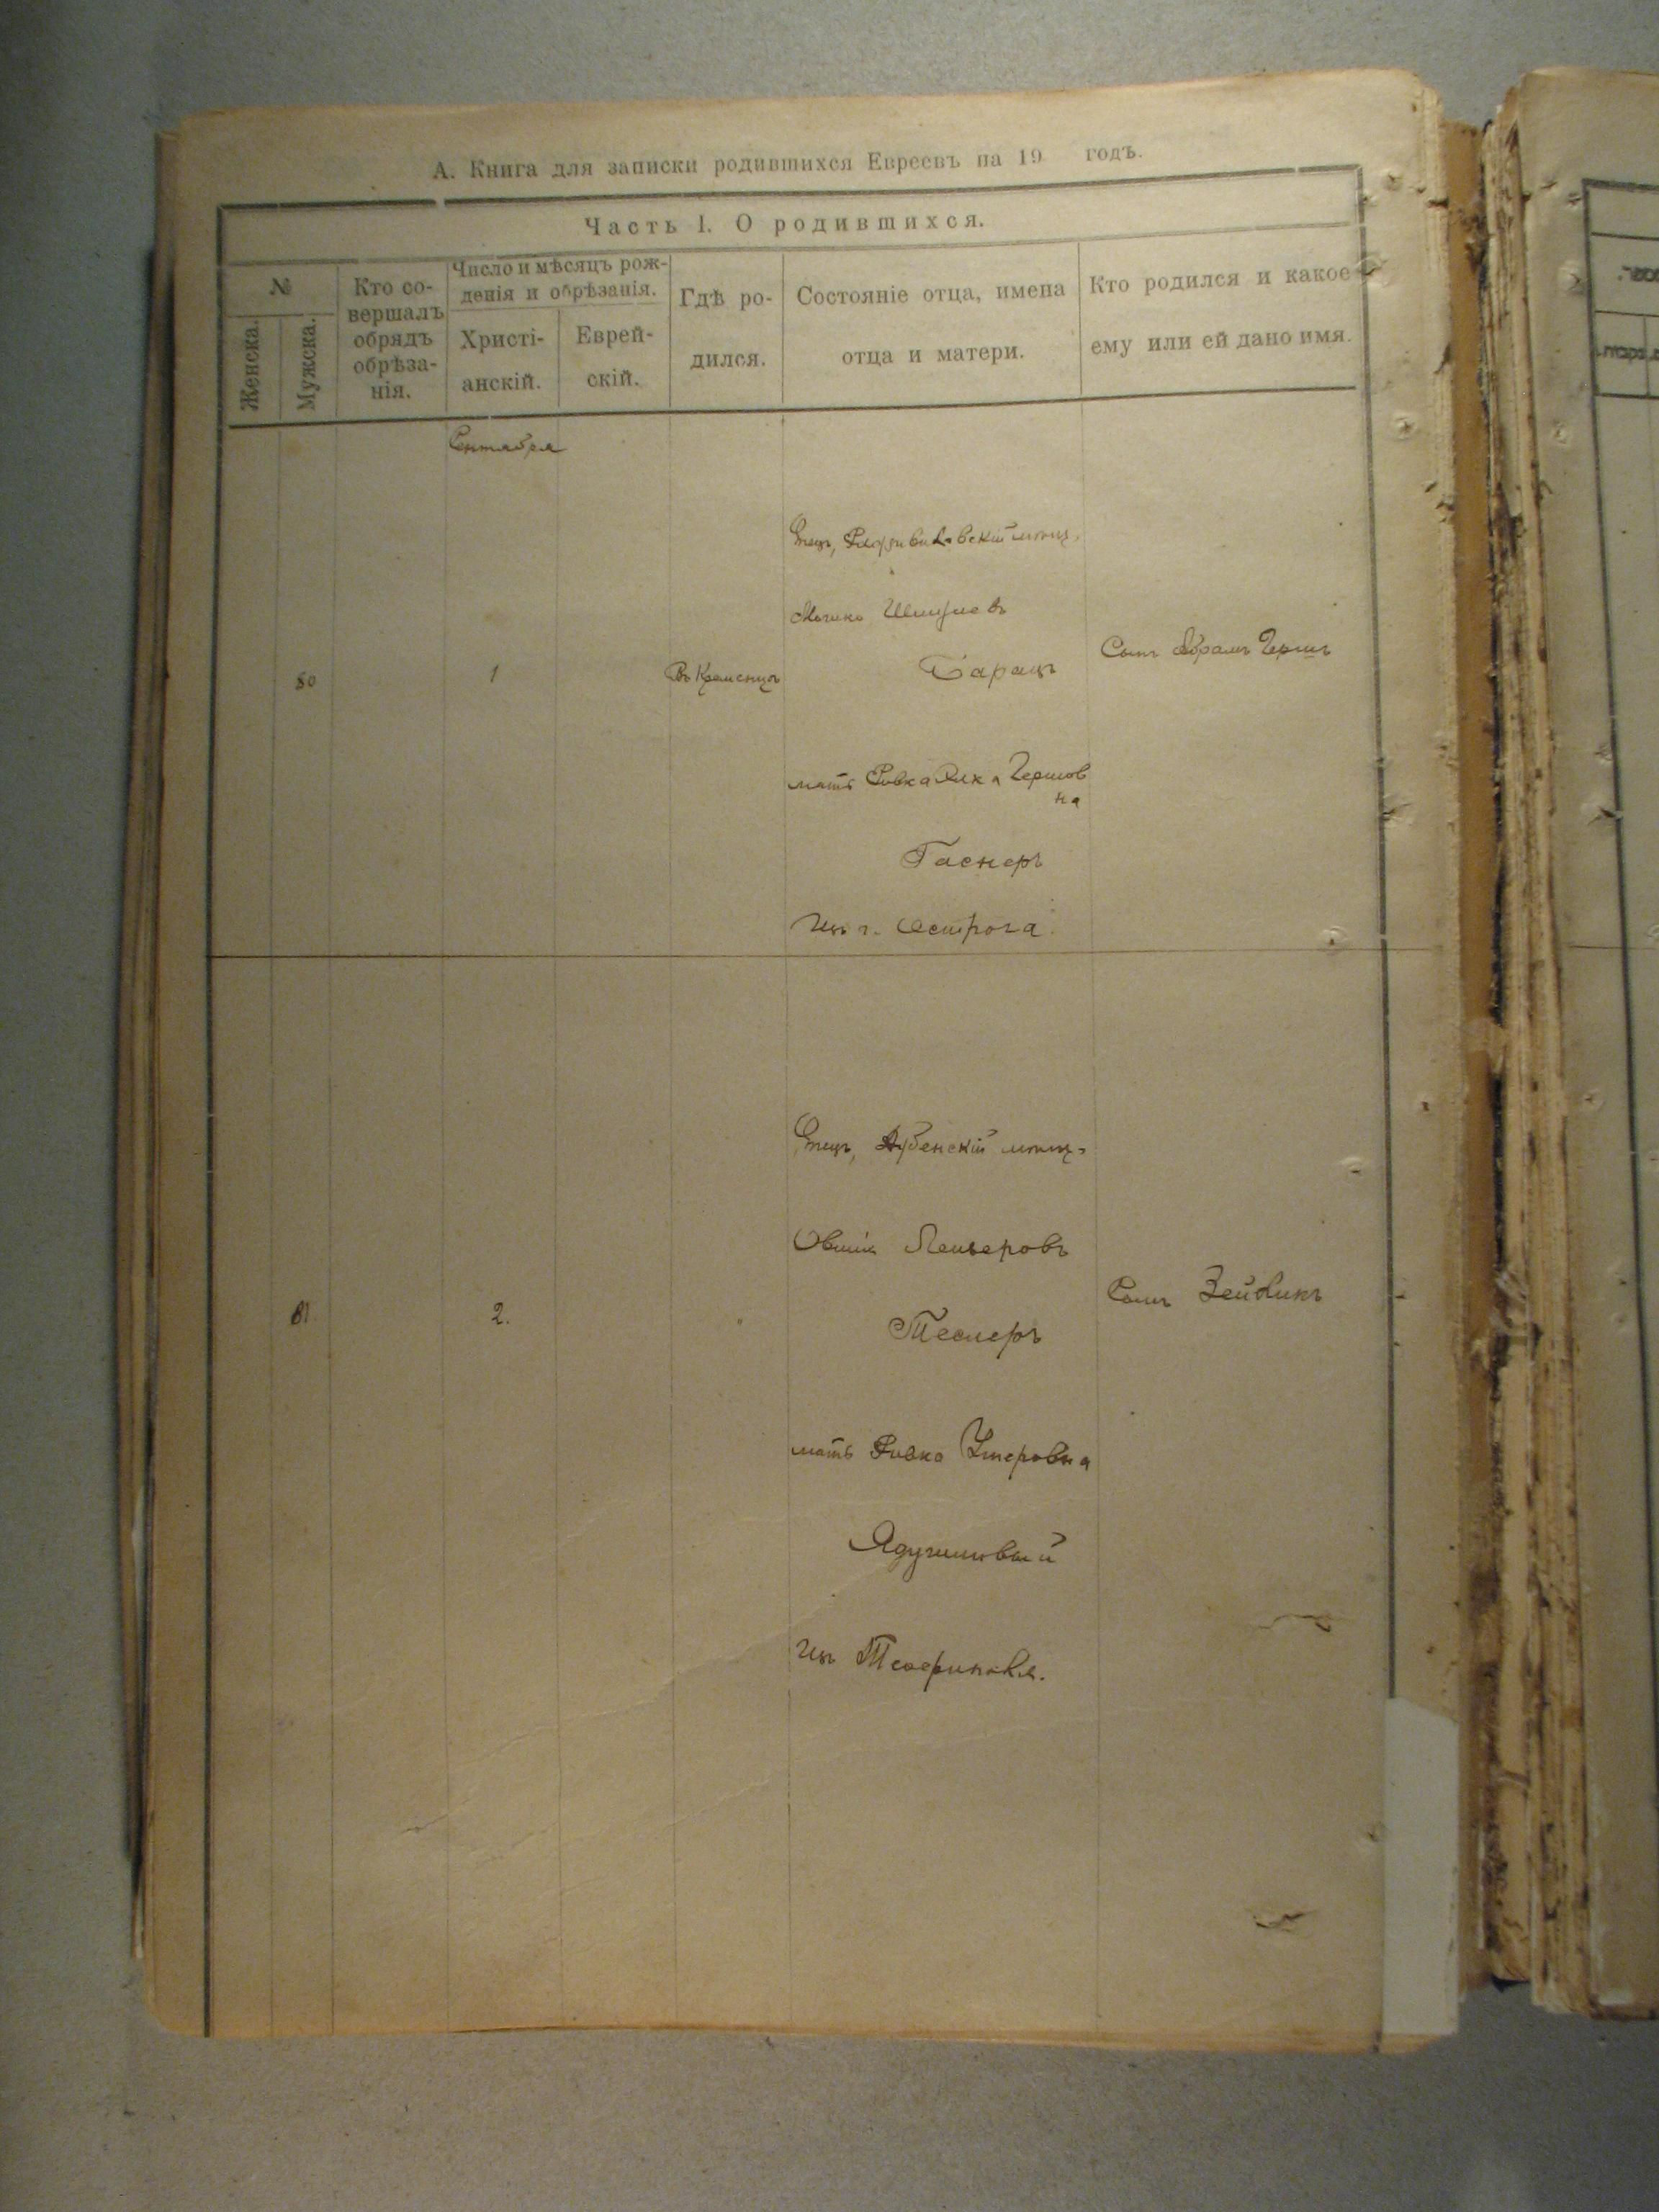 А. Книга для записки родившихся Евреевъ на 19 годъ.
Часть I. О родившихся.
№
Женска.
Мужска.
Кто совершалъ обрядъ обрѣзанія.
Число и мѣсяцъ рожденія и обрѣзанія.
Христіанскій.
Еврейскій.
Гдѣ родился.
Состояніе отца, имена отца и матери.
Кто родился и какое ему или ей дано имя.
Сентября
80
1
Въ Кременцѣ
Отецъ, Радзивиловскій мѣщ.
Мошко
Барацъ
мать Ривка Элка Гершов
на
Гаснеръ
изъ г. Острога
Сынъ Абрамъ Гершъ
81
2.
Отецъ, Дубенскій мѣщ.
Овшія Лейзеровъ
Теслеръ
мать Ривка
изъ Теофиполя.
Сынъ Зейвликъ